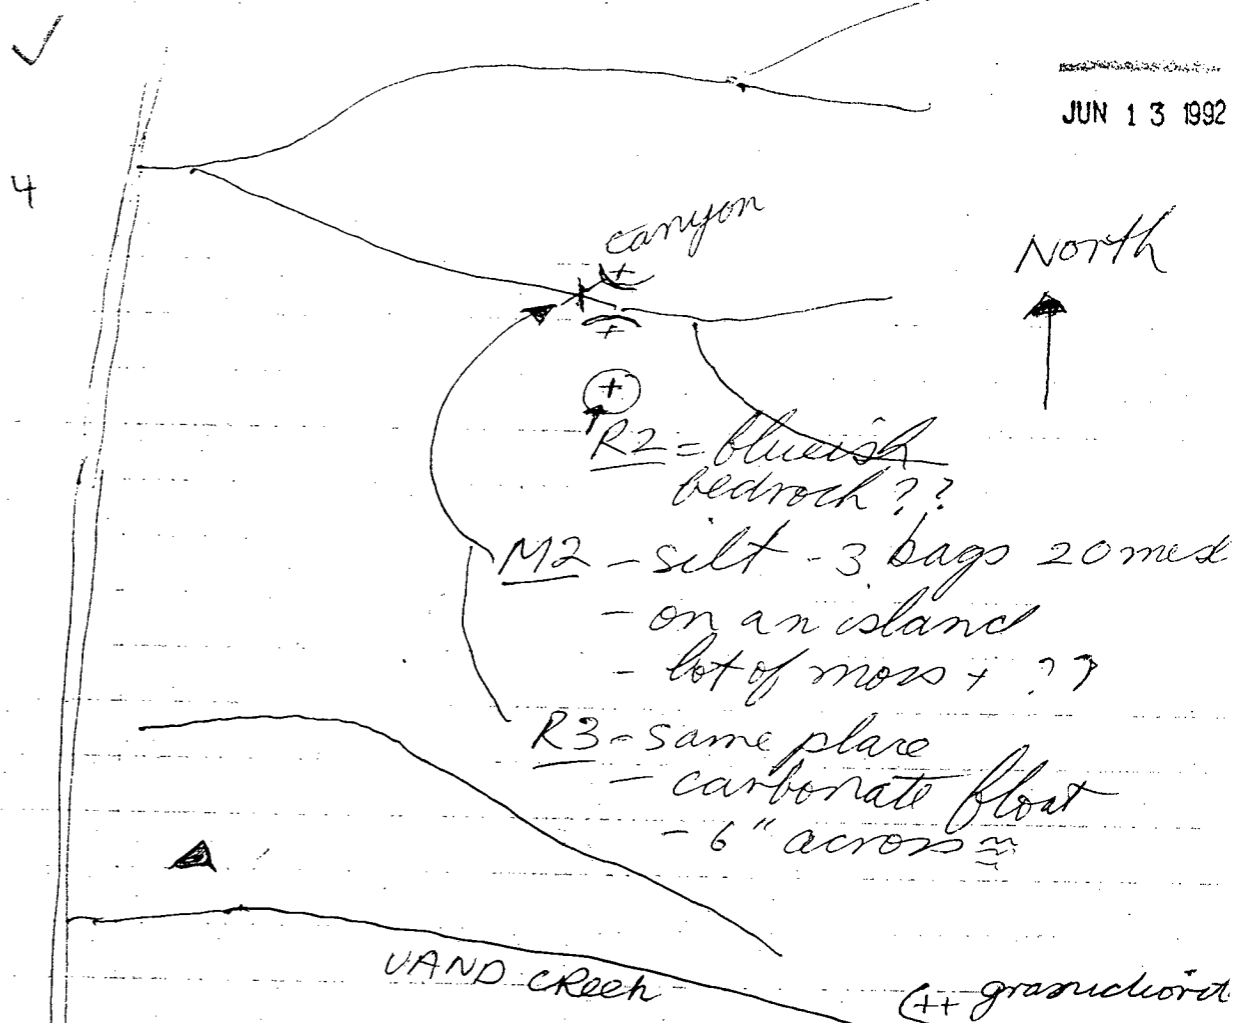 JUN 13 1992
4
canyon
North
R2 = blueish
bedroch ??
M2 - silt - 3 bags 20 mesh
- on an island
- lot of moss + ??
R3 - same place
- carbonate float
- 6" across ≈
VAND CREEK
(++